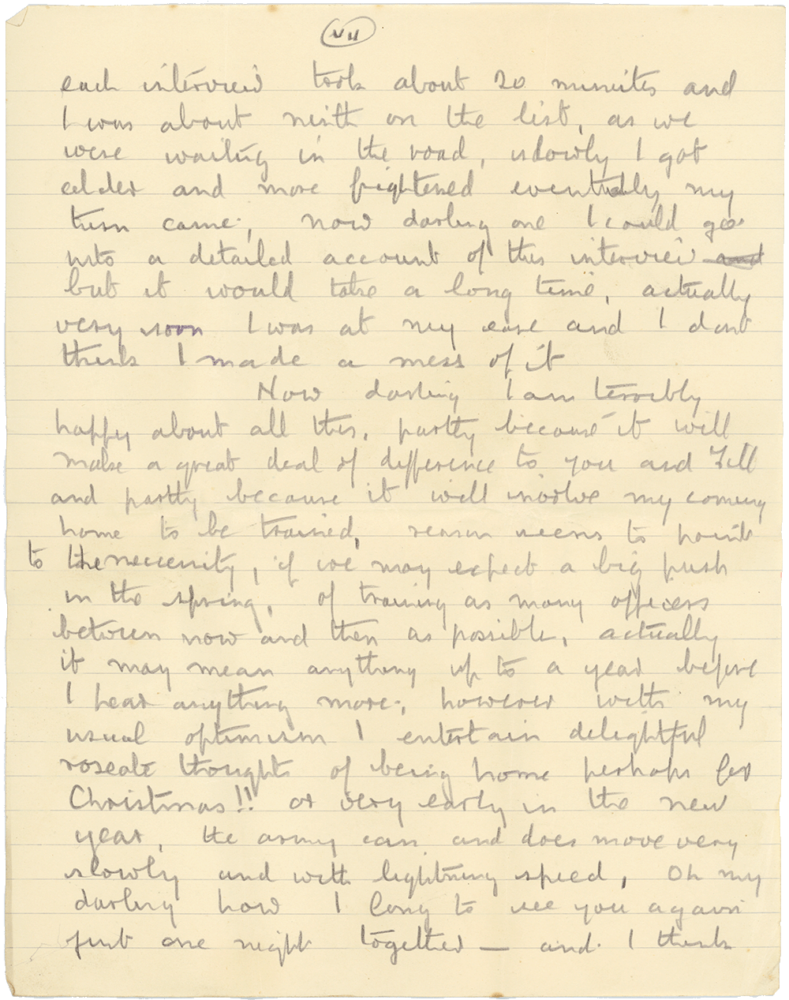 VII
each interview took about 20 minutes and
I was about ninth on the list, as we
were waiting in the road, slowly I got
colder and more frightened eventually my
turn came, now darling one I could go
into a detailed account of this interview and
but it would take a long time, actually
very soon I was at my ease and I dont
think I made a mess of it
Now darling I am terribly
happy about all this, partly because it will
make a great deal of difference to you and Jill
and partly because it will involve my coming
home to be trained, reason seems to point
to the necessity, if we may expect a big push
in the spring, of training as many officers
between now and then as possible, actually
it may mean anything up to a year before
I hear anything more, however with my
usual optimism I entertain delightful
roseate thoughts of being home perhaps for
Christmas!! or very early in the new
year, the army can and does move very
slowly and with lightning speed, Oh my
darling how I long to see you again
just one night together — and I think